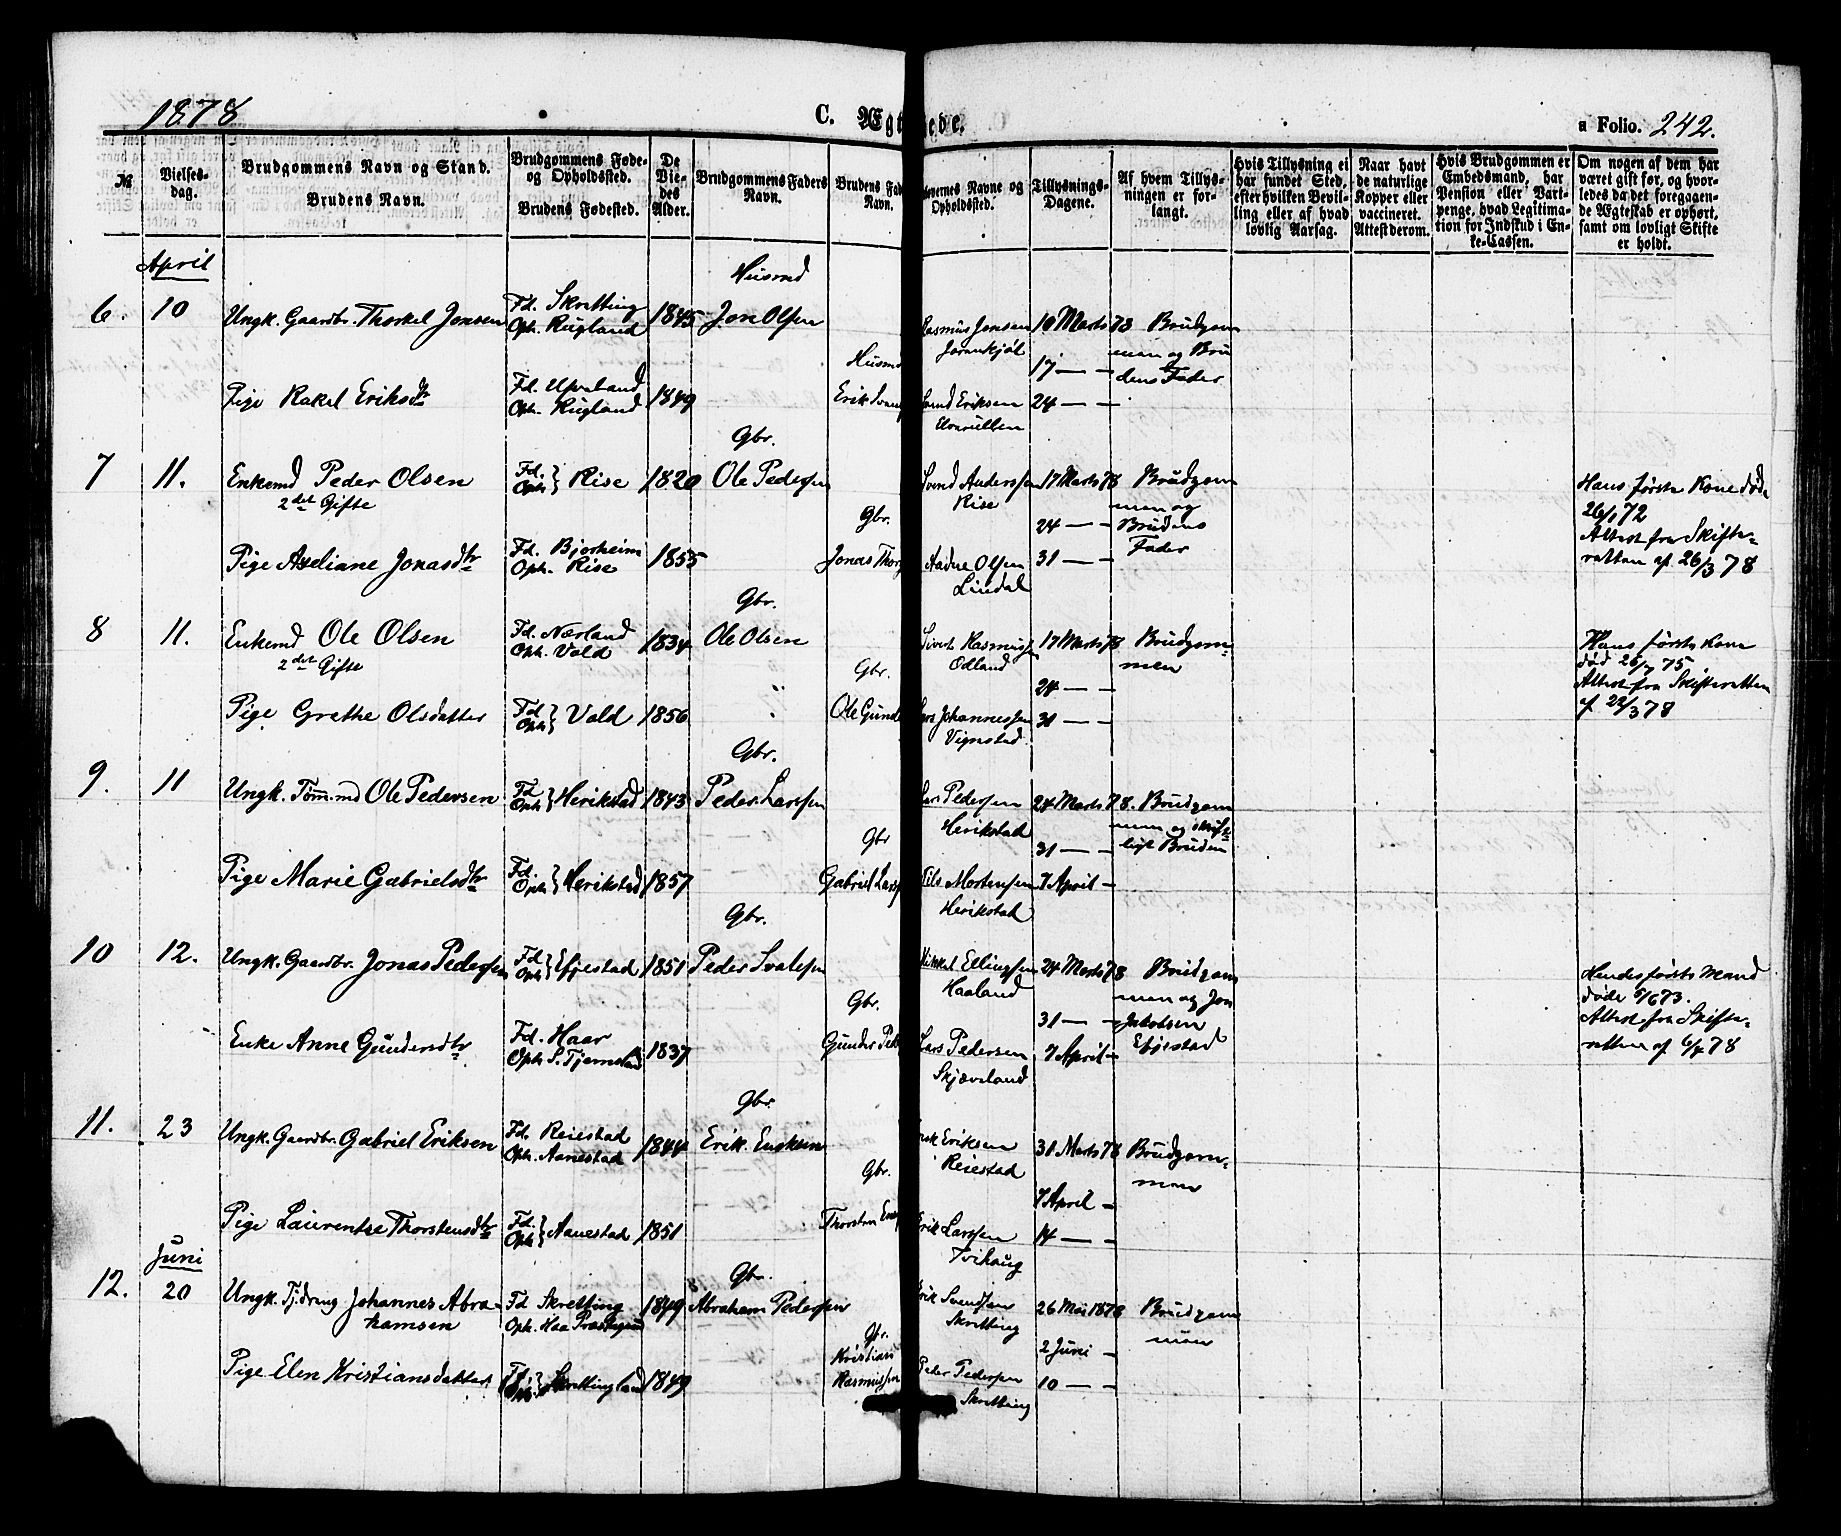 1878
C. Ægt
ede.
a Folio. 242.
№
Vielses-
dag.
Brudgommens Navn og Stand.
Brudens Navn.
Brudgommens Føde-
og Opholdssted.
Brudens Fødested.
De
Vie-
des
Alder.
Brudgommens Faders
Navn.
Brudens Fad
Navn.
denernes Navne og
Opholdssted.
Tillysnings-
Dagene.
Af hvem Tillys-
ningen er for-
langt.
Hvis Tillysning ei
har fundet Sted,
efter hvilken Bevil-
ling eller af hvad
lovlig Aarsag.
Naar havt
de naturlige
Kopper eller
vaccineret.
Attest derom.
Hvis Brudgommen er
Embedsmand, har
Pension eller Vart-
penge, hvad Legitima-
tion for Indskud i En-
ke-Cassen.
Om nogen af dem har
været gift før, og hvor-
ledes da det foregaaen-
de Ægteskab er ophørt,
samt om lovligt Skifte
er holdt.
April
6. 10 Ungk. Gaardbr. Thorkel Jonsen
Fd. Skretting
Oph. Rugland
1845
Husmd
Jon Olsen
Rasmus Jonsen
10 Marts 78
Brudgom
men og Bru
dens Fader
17 — —
Pige Rakel Eriksdtr
Fd. Upseland
Oph. Rugland
1849
Husmd
Erik Svend
Svend Eriksen
24 — —
7 11. Enkemd Peder Olsen
2det Gifte
Fd.
Oph. } Rise
1820
Gbr.
Ole Pedersen
Svend Anderssen
Rise
17 Marts 78
Brudgom
men og
Brudens
Fader
Hans første Kone død
26/1 72
Attest fra Skifte-
retten af 26/3 78
24 — —
Pige Axeliane Jonasdtr
Fd. Bjorheim
Oph. Rise
1855
Gbr.
Jonas Thor
Aadne Olsen
Lindal
31 — —
8 11. Enkemd Ole Olsen
2det Gifte
Fd. Nærland
Oph. Vold
1834
Gbr.
Ole Olsen
Sivert Rasmussen
Odland
17 Marts 78
Brudgom-
men
Hans første Kone
død 26/7 75
Attest fra Skifteretten
af 22/3 78
24 — —
Pige Grethe Olsdatter
Fd
Oph } Vold
1856
Gbr.
Ole Gunde
Lars Johannessen
Vignstad
31 — —
9. 11 Ungk. Tømmd Ole Pedersen
Fd
Oph } Herikstad
1843
Gbr.
Peder Larssen
Lars Pedersen
Herikstad
24 Marts 78.
Brudgom
men og skrift-
ligt Bruden
31 — —
Pige Marie Gabrielsdtr
Fd.
Oph } Herikstad
1857
Gbr
Gabriel Lars
Nils Mortensen
Herikstad
7 April —
10 12. Ungk. Gaardbr. Jonas Pedersen
Fd
Oph } Efjestad
1851
Gbr.
Peder Svalesen
Mikkel Ellingsen
Haaland
24 Marts 78
Brudgom
men og Jon
Jakobsen
Efjestad
Hendes første Mand
døde 5/6 73.
Attest fra Skifte-
retten af 6/4 78
31 — —
Enke Anne Gundersdtr
Fd. Haar
Oph. S. Tjemsland
1837
Gbr.
Gunder Ped
Lars Pedersen
Skjæveland
7 April —
11. 23 Ungk. Gaardbr. Gabriel Eriksen
Fd. Reiestad
Oph. Aanestad
1844
Gbr.
Erik
Erik Eriksen
Reiestad
31 Marts 78
Brudgom-
men
7 April —
Pige Laurentse Thorstensdtr
Fd.
Oph } Aanestad
1851
Gbr.
Thorsten
Erik Larssen
Tvihaug
14 — —
Juni
12. 20 Ungk. Tjdreng Johannes Abra-
hamsen
Fd Skretting
Oph. Haa Præstegaard
1849
Gbr.
Abraham Pedersen
Erik Svendsen
Skretting
26 Mai 1878
Brudgom
men
2 Juni —
Pige Elen Kristiansdatter
Fd.
Oph. } Skrettingland
1849
Gbr.
Kristian
Rasmussen
Peder Pedersen
Skretting
10 — —